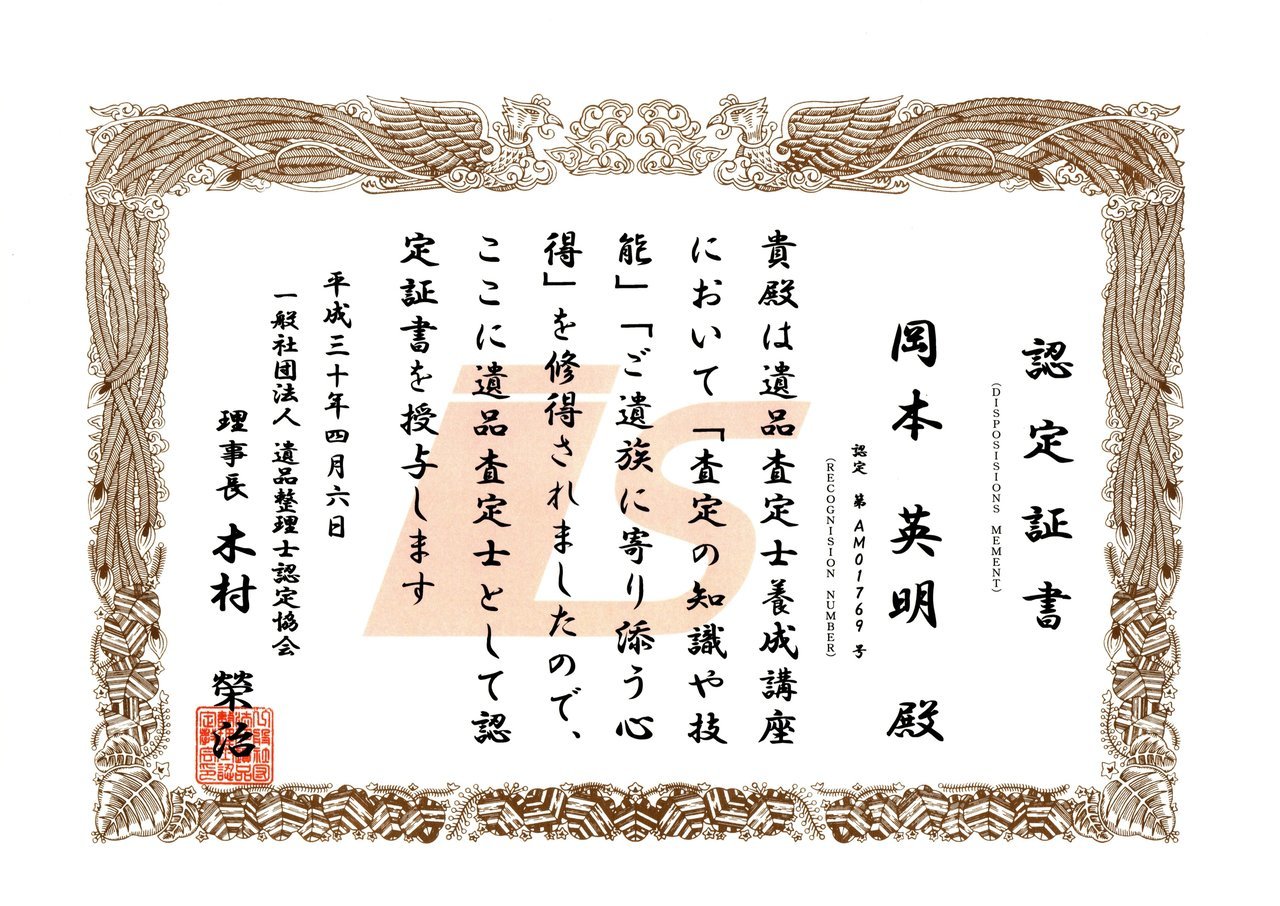 認定証書
(DISPOSISIONS MEMENT)
岡本 英明 殿
認定 第AM01769号
(RECOGNISION NUMBER)
貴殿は遺品査定士養成講座
において「査定の知識や技
能」「ご遺族に寄り添う心
得」を修得されましたので、
ここに遺品査定士として認
定証書を授与します
平成三十年四月六日
一般社団法人 遺品整理士認定協会
理事長 木村 榮治
iS